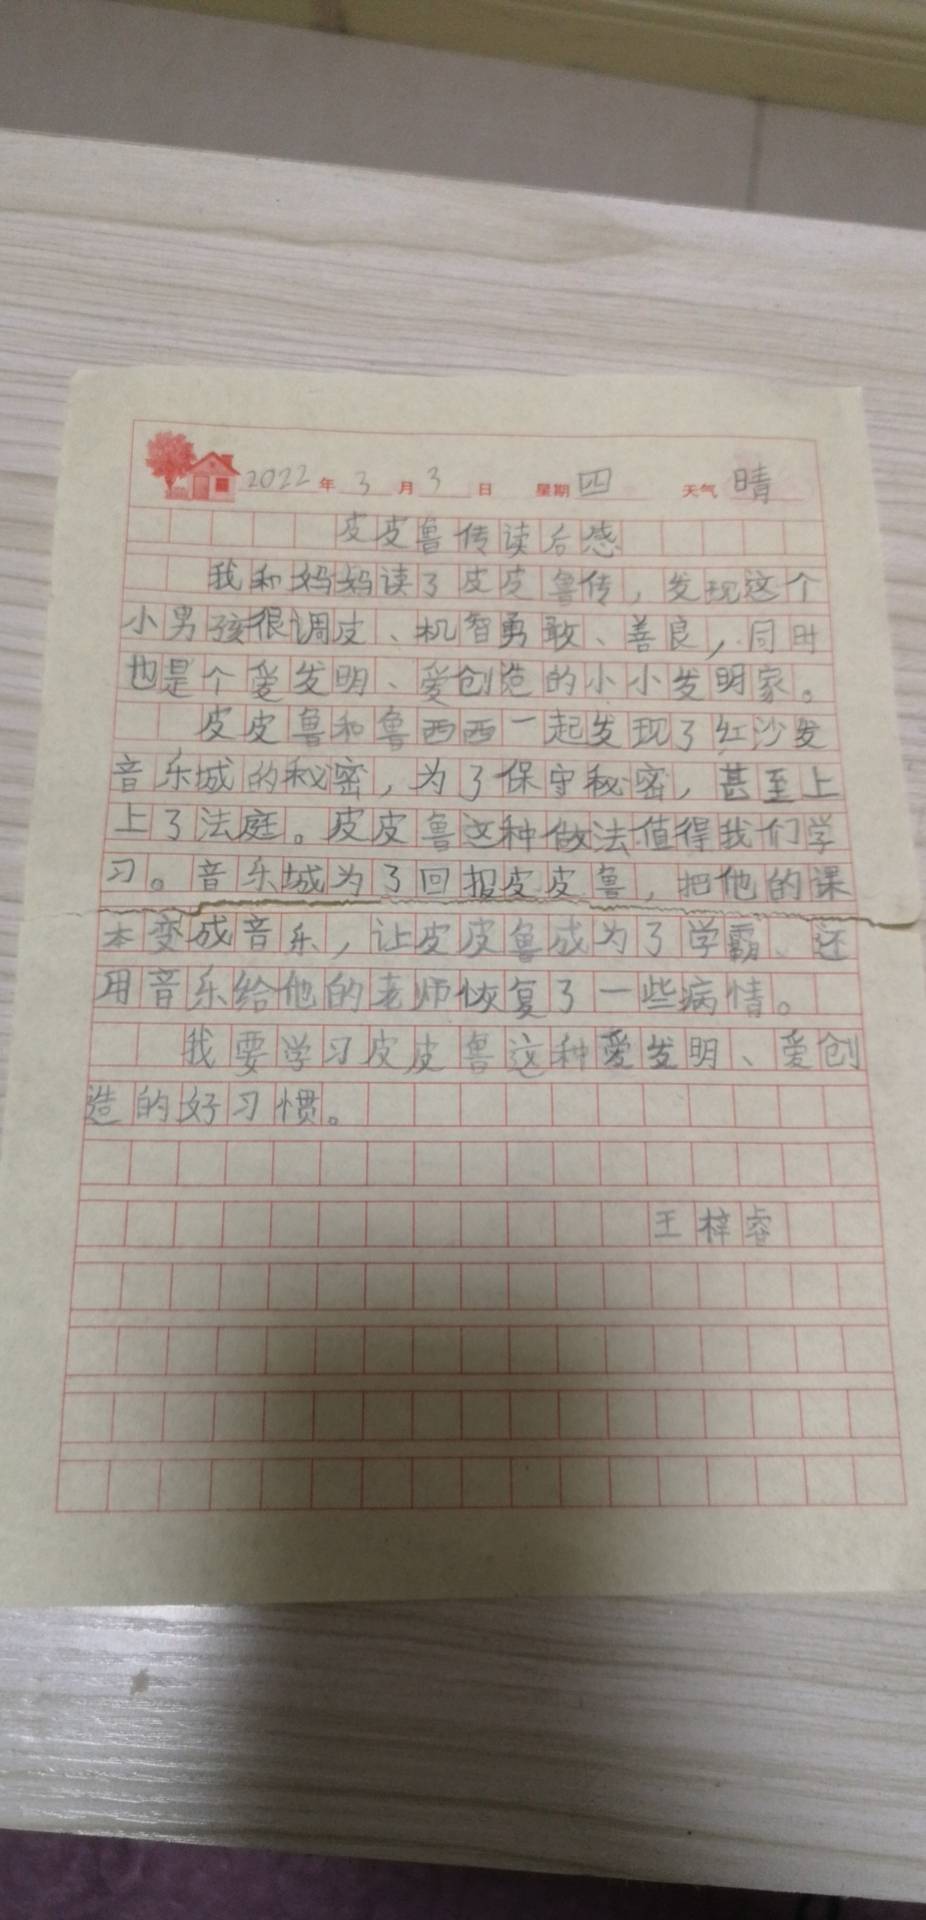 2022年3月3日 星期四 天气晴
皮皮鲁传读后感
我和妈妈读了皮皮鲁传，发现这个
小男孩很调皮、机智勇敢、善良，同时
也是个爱发明、爱创造的小小发明家。
皮皮鲁和鲁西西一起发现了红沙发
音乐城的秘密，为了保守秘密，甚至上
上了法庭。皮皮鲁这种做法值得我们学
习。音乐城为了回报皮皮鲁，把他的课
本变成音乐，让皮皮鲁成为了学霸、还
用音乐给他的老师恢复了一些病情。
我要学习皮皮鲁这种爱发明、爱创
造的好习惯。
王梓睿